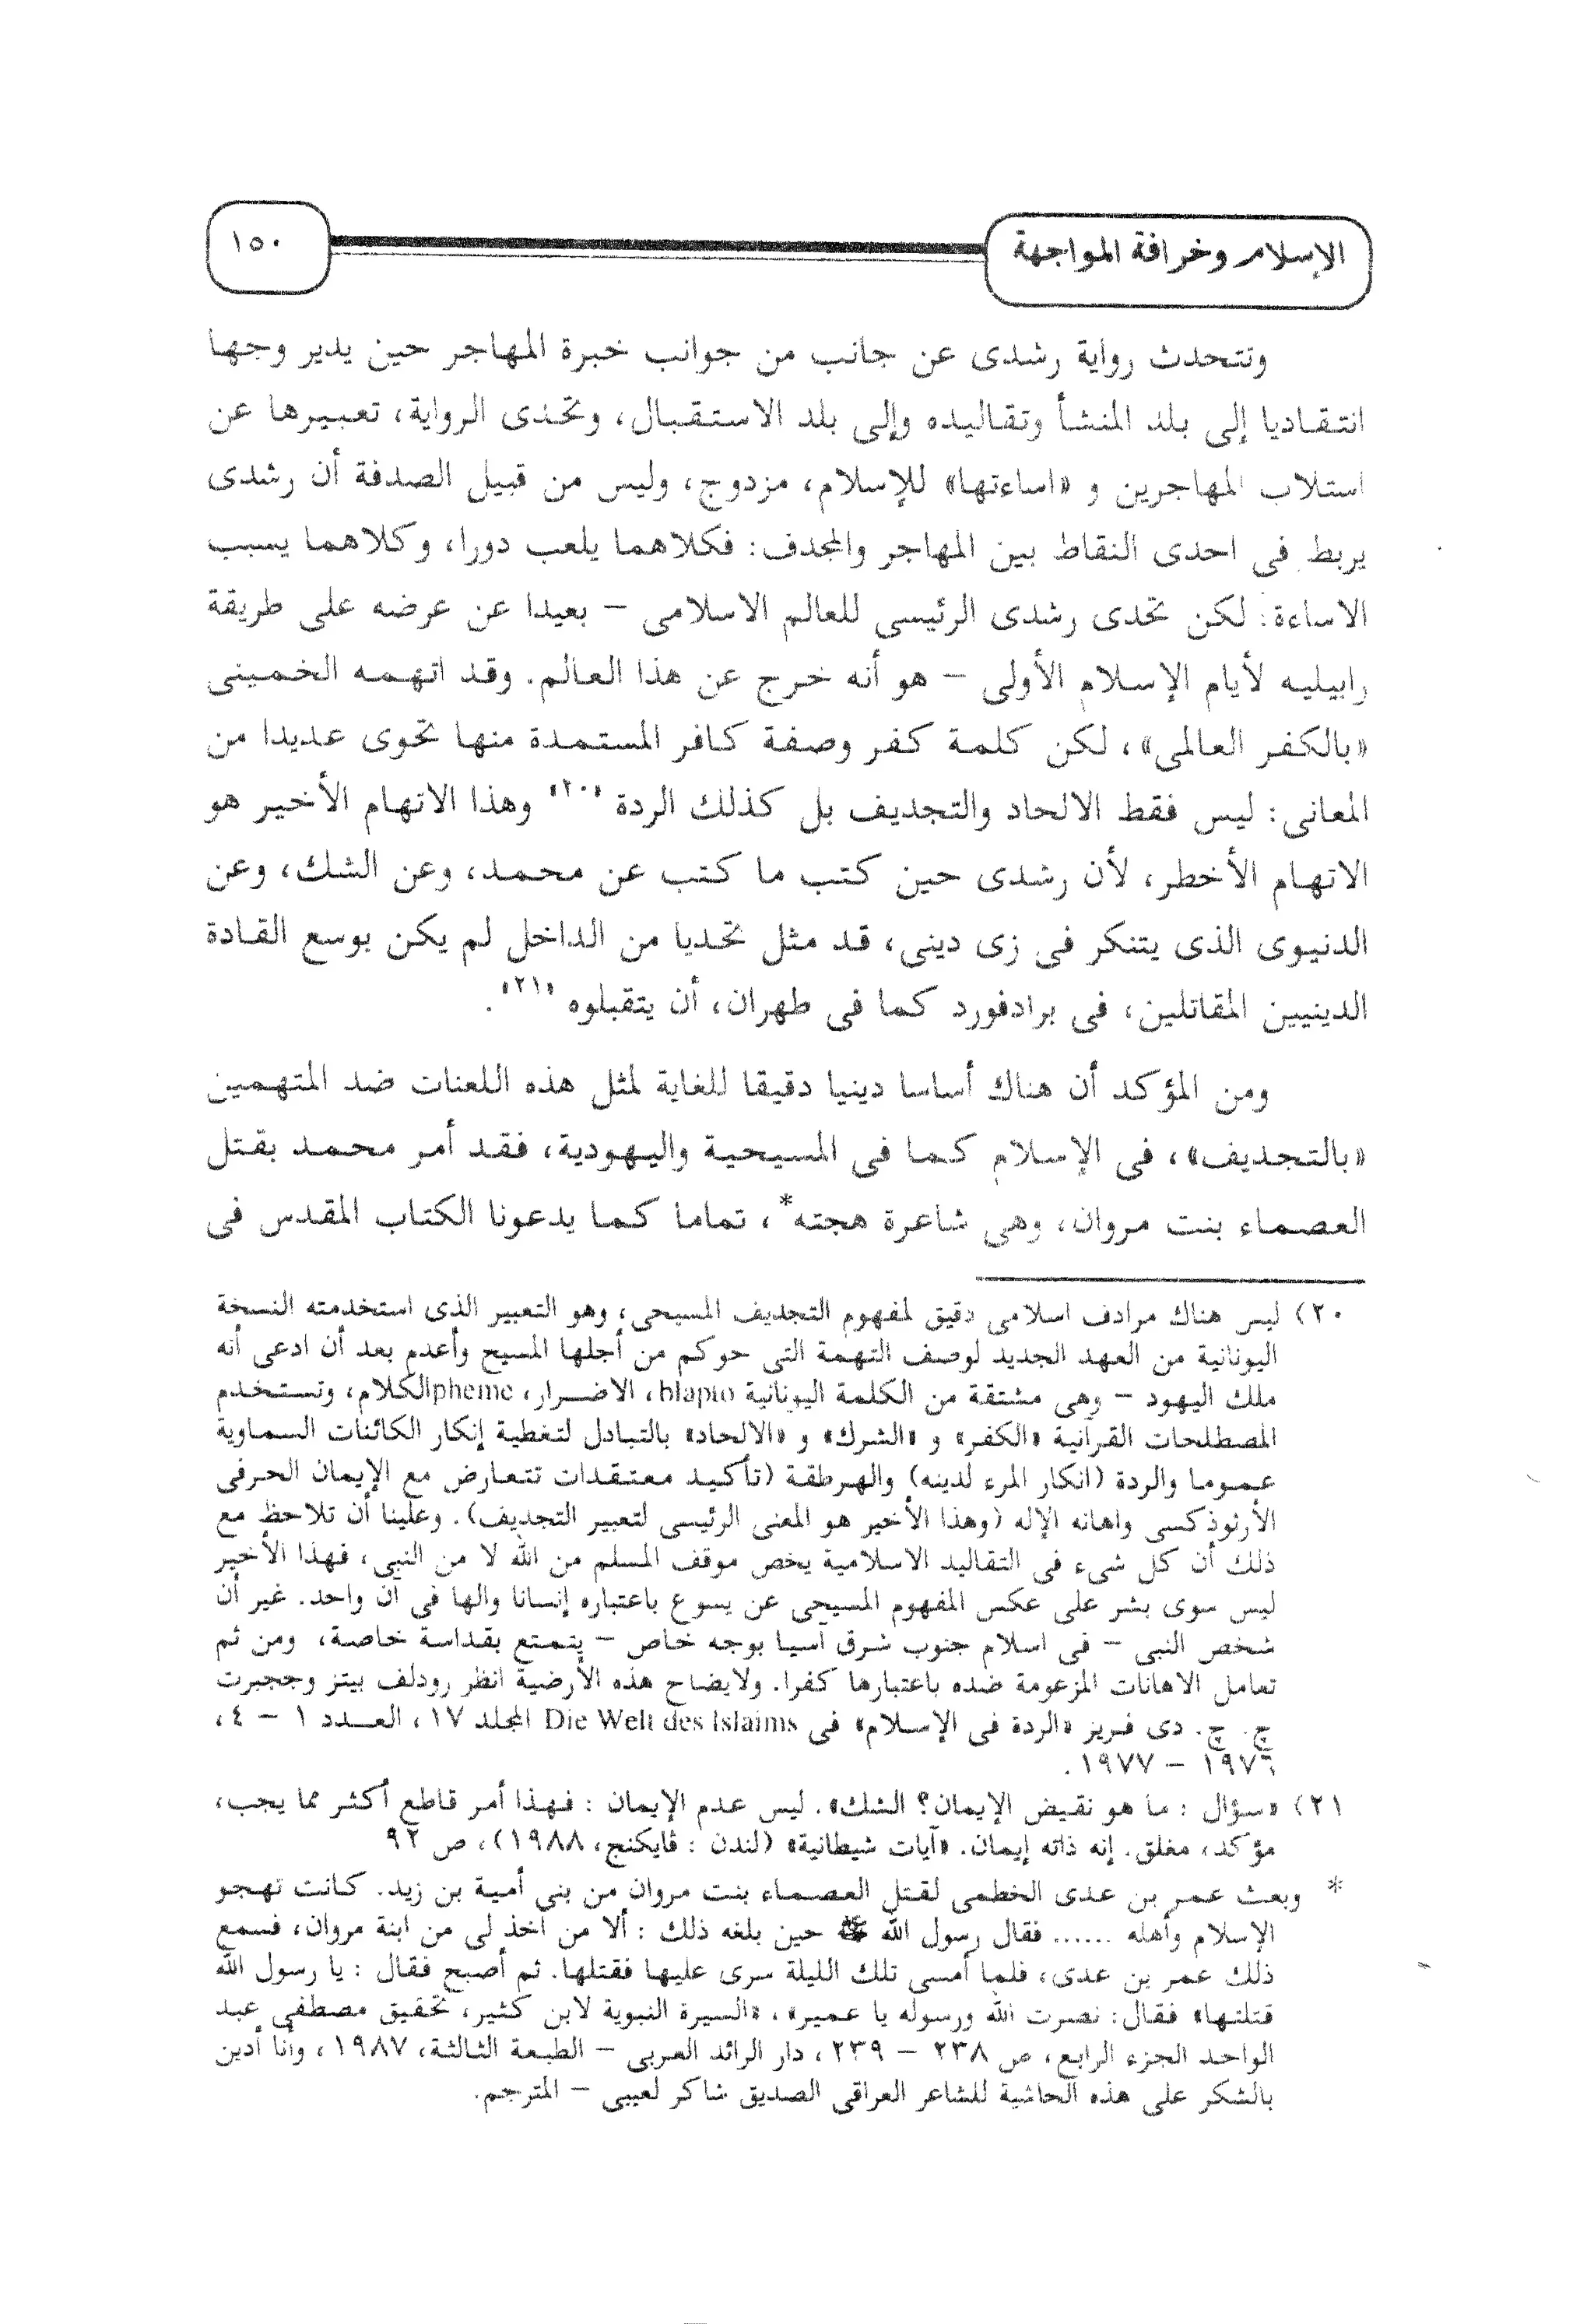 الإسلام وخرافة المواجهة
١٥٠
وتتحدث رواية رشدى عن جانب من جوانب خبرة المهاجر حين يدير وجها
انتقاديا إلى بلد المنشأ وتقاليده وإلى بلد الاستقبال، وتحدى الرواية، تعبيرها عن
استلاب المهاجرين و «اساءتها» للإسلام، مزدوج، وليس من قبيل الصدفة أن رشدى
يربط فى احدى النقاط بين المهاجر والمجدف: فكلاهما يلعب دورا، وكلاهما يسبب
الاساءة: لكن تحدى رشدى الرئيسى للعالم الاسلامى – بعيدا عن عرضه على طريقة
رابيليه لأيام الإسلام الأولى – هو أنه خرج عن هذا العالم. وقد اتهمه الخمينى
«بالكفر العالمى»، لكن كلمة كفر وصفة كافر المستمدة منها تحوى عديدا من
المعانى: ليس فقط الالحاد والتجديف بل كذلك الردة «٢٠» وهذا الاتهام الأخير هو
الاتهام الأخطر، لأن رشدى حين كتب ما كتب عن محمد، وعن الشك، وعن
الدنيوى الذى يتنكر فى زى دينى، قد مثل تحديا من الداخل لم يكن بوسع القادة
الدينيين المقاتلين، فى برادفورد كما فى طهران، أن يتقبلوه «٢١».
ومن المؤكد أن هناك أساسا دينيا دقيقا للغاية لمثل هذه اللعنات ضد المتهمين
«بالتجديف»، فى الإسلام كما فى المسيحية واليهودية، فقد أمر محمد بقتل
العصماء بنت مروان، وهى شاعرة هجته*، تماما كما يدعونا الكتاب المقدس فى
٢٠) ليس هناك مرادف اسلامى دقيق لمفهوم التجديف المسيحى، وهو التعبير الذى استخدمته النسخة
اليونانية من العهد الجديد لوصف التهمة التى حوكم من أجلها المسيح وأعدم بعد أن ادعى أنه
ملك اليهود – وهى مشتقة من الكلمة اليونانية blapto، الاضرار، phemeالكلام، وتستخدم
المصطلحات القرآنية «الكفر» و «الشرك» و «الالحاد» بالتبادل لتغطية إنكار الكائنات السماوية
عموما والردة (انكار المرء لدينه) والهرطقة (تأكيد معتقدات تتعارض مع الإيمان الحرفى
الأرثوذكسى واهانه الإله (وهذا الأخير هو المعنى الرئيسى لتعبير التجديف). وعلينا أن تلاحظ مع
ذلك أن كل شىء فى التقاليد الاسلامية يخص موقف المسلم من الله لا من النبى، فهذا الأخير
ليس سوى بشر على عكس المفهوم المسيحى عن يسوع باعتباره إنسانا والها فى آن واحد. غير أن
شخص النبى – فى اسلام جنوب شرق آسيا بوجه خاص – يتمتع بقداسة خاصة، ومن ثم
تعامل الاهانات المزعومة ضده باعتبارها كفرا. ولايضاح هذه الأرضية انظر رودلف بيتز وججبرت
ج. ج. دى فريز «الردة فى الإسلام» فى Die Welt des Islaims المجلد ١٧، العدد ١ – ٤،
١٩٧٦ – ١٩٧٧.
٢١) «سؤال : ما هو نقيض الإيمان؟ الشك». ليس عدم الإيمان : فهذا أمر قاطع أكثر مما يجب،
مؤكد، مغلق. إنه ذاته إيمان. «آيات شيطانية» (لندن : ڤايكنج، ١٩٨٨)، ص ٩٢
* وبعث عمر بن عدى الخطمى لقتل العصماء بنت مروان من بنى أمية بن زيد. كانت تهجو
الإسلام وأهله ...... فقال رسول الله ﷺ حين بلغه ذلك : ألا من آخذ لى من ابنة مروان، فسمع
ذلك عمر بن عدى، فلما أمسى تلك الليلة سرى عليها فقتلها. ثم أصبح فقال : يا رسول الله
قتلتها» فقال: نصرت الله ورسوله يا عمير»، «السيرة النبوية لابن كثير، تحقيق مصطفى عبد
الواحد الجزء الرابع، ص ٢٣٨ – ٢٣٩، دار الرائد العربى – الطبعة الثالثة، ١٩٨٧، وأنا أدين
بالشكر على هذه الحاشية للشاعر العراقى الصديق شاكر لعيبى – المترجم.